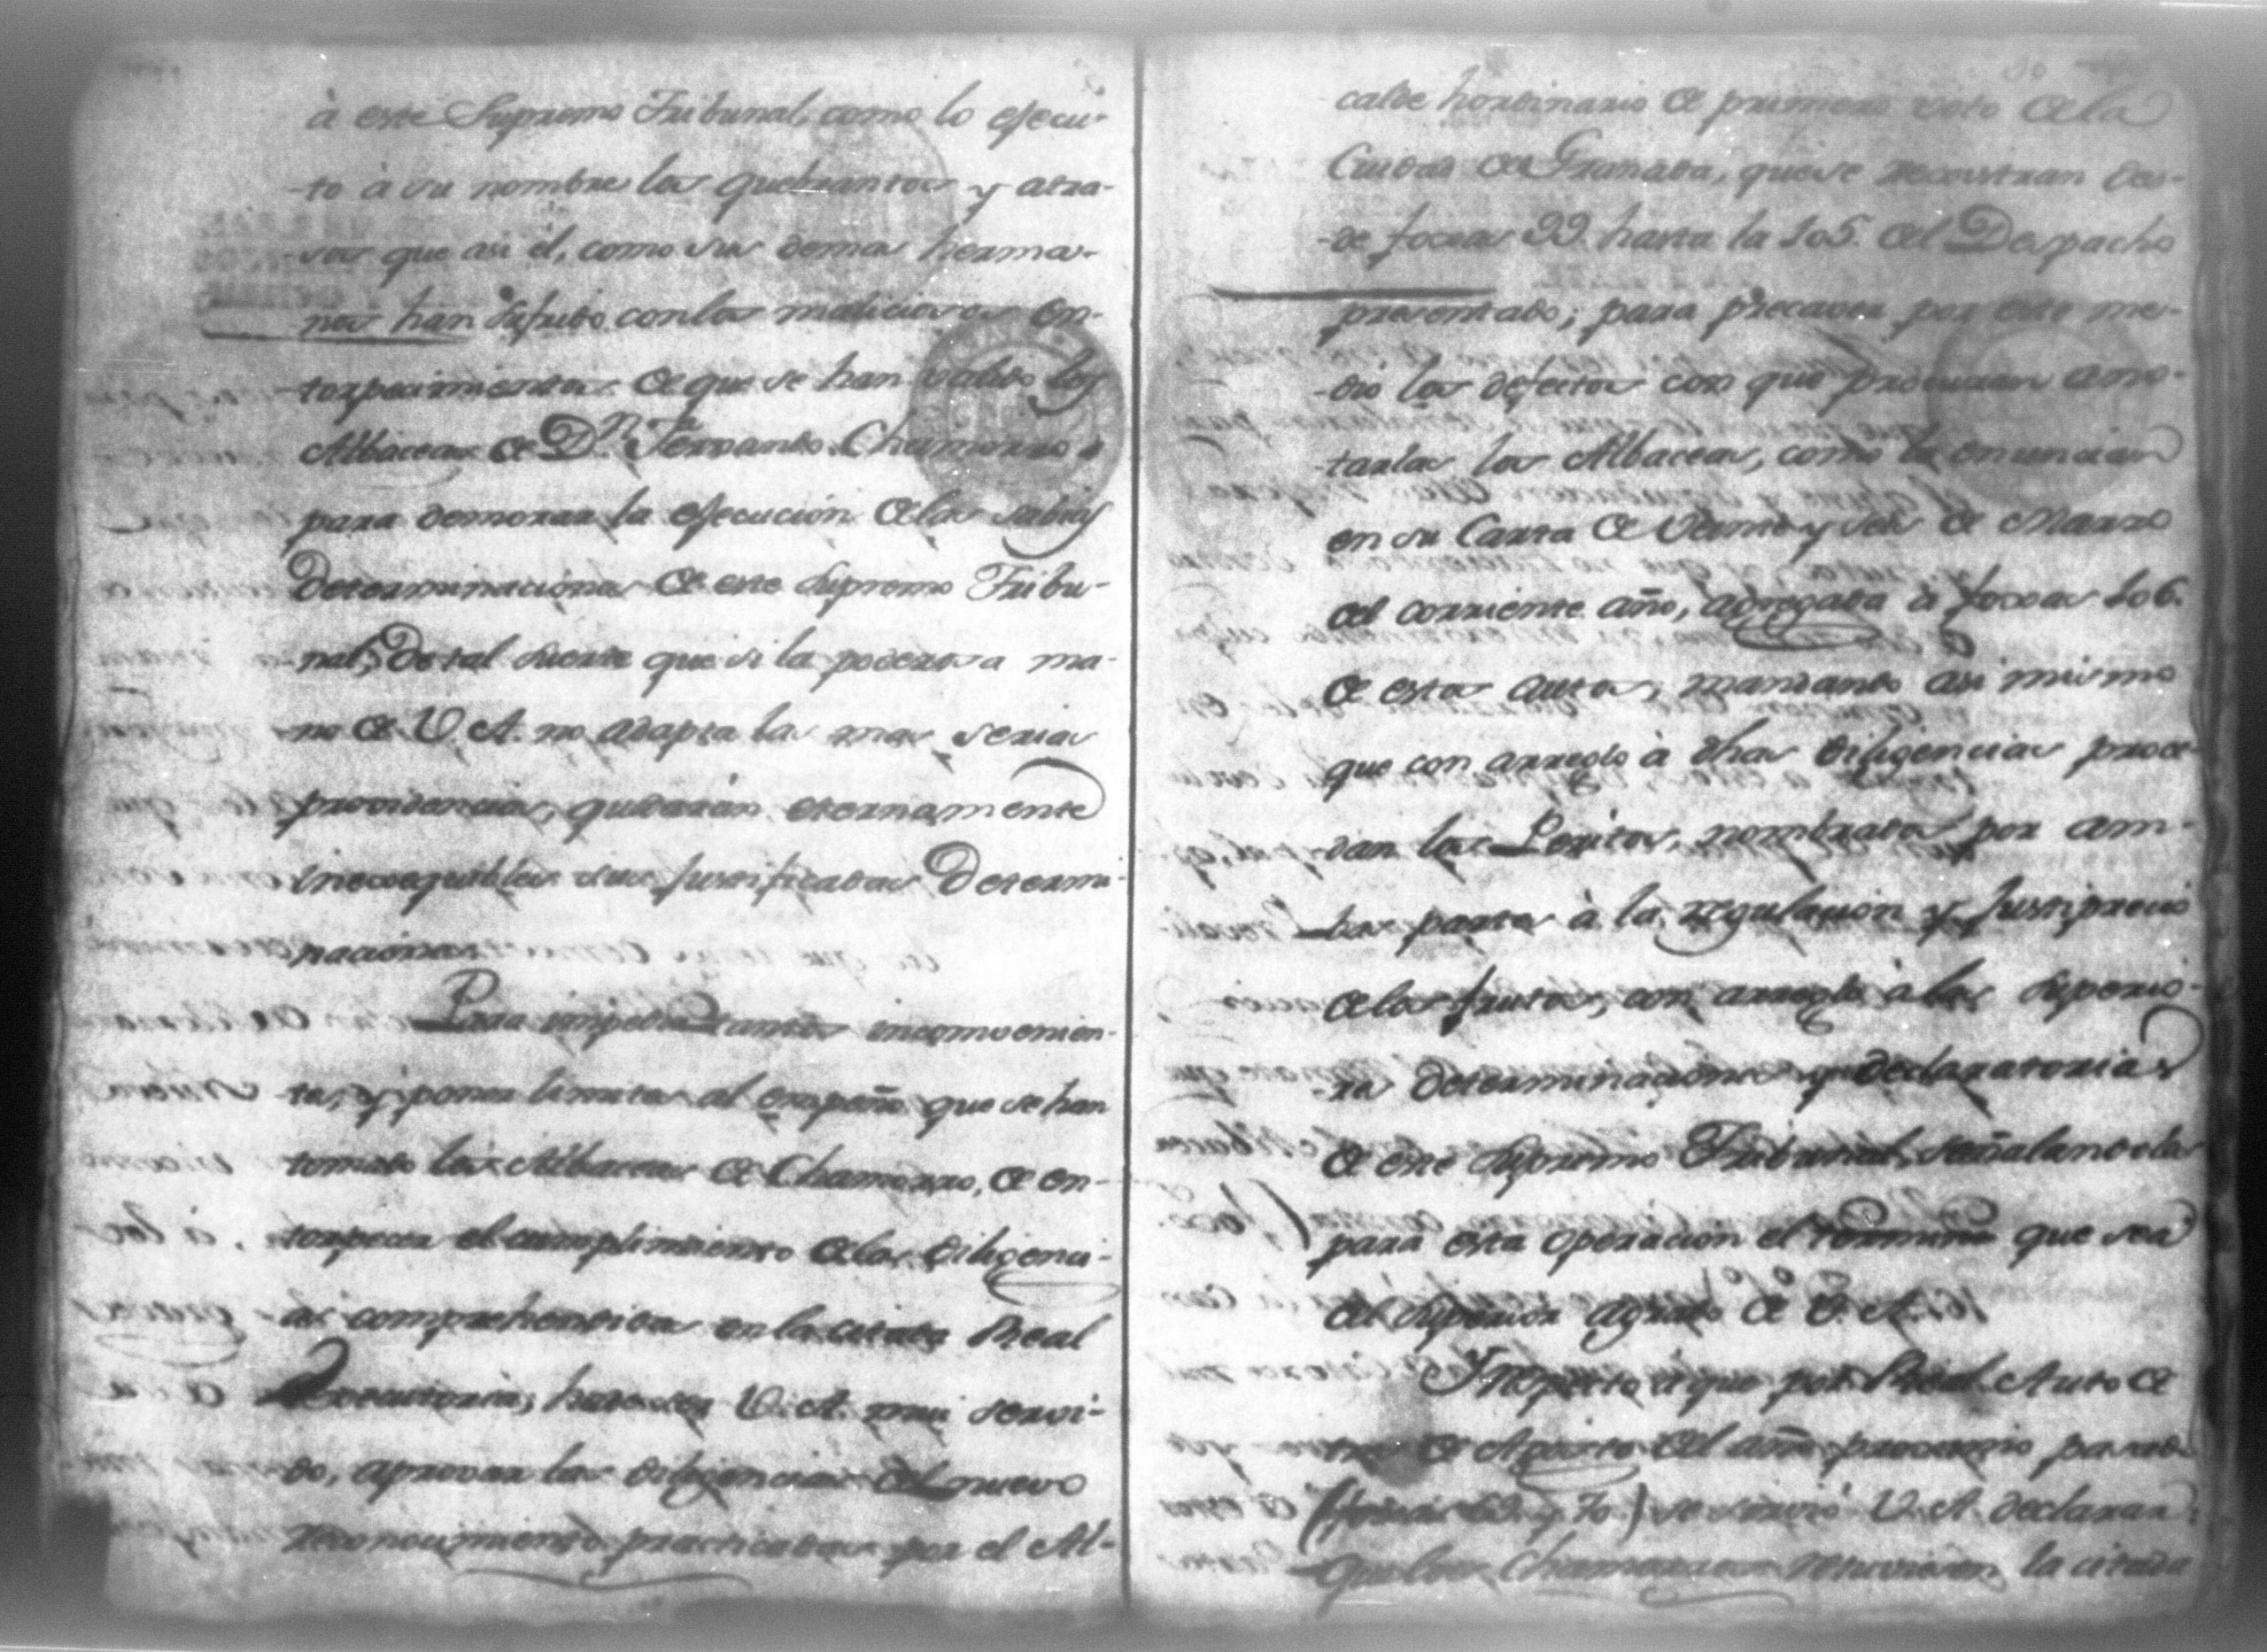 à este Supremo Tribunal, como lo efecu-
-to à su nombre los quebrantos y atra-
-sos que asi èl, como sus demas herma-
nos han sufrido con los maliciosos en-
-torpecimientos de que se han valido los
Albaceas de Dn. Fernando Chamorro
para demorar la efecucion de las sabias
Determinaciones de este Supremo Tribu-
nal; De tal suerte que si la poderosa ma-
no de V. A. no adapta las mas serias
providencias, quedaràn eternamente
inexequibles sus justificadas Determi-
naciones.
Para impedir tantos inconvenien-
tes, y poner limites al empeño que se han
tomado los Albaceas de Chamorro, de en-
torpecer el cumplimiento de las diligenci-
as comprehendidas en la citada Real
Executoria, ha de ser V. A. muy servi-
do, aprovar las diligencias del nuevo
reconocimiento practicadas por el Al-
calde hordinario de primero voto de la
Ciudad de Granada, que se recostran des-
-de foxas 99. hasta la 105. del Despacho
presentado; para precaver por este me-
-dio los defectos con que procuran ano-
tarlas los Albaceas, como lo enuncian
en su Carta de Veinte y seis de Marzo
del corriente año, agregada à foxas 106.
de estos autos, mandando asi mismo
que con arreglo à dhas diligencias proce-
dan los Peritos, nombrados por am-
-bas partes à la regulacion y Justiprecio
de los frutos, con arreglo à las Superio-
-res determinaciones y declaratorias
de este Supremo Tribunal, señalandoles
para esta operacion el termino que sea
del Superior agrado de V. A.
Respecto à que por Real Auto de
tres de Agosto del año proximo pasado
(foxas 69. y 70.) se sirviò V. A. declarar:
que los Chamorros retuviesen la citada